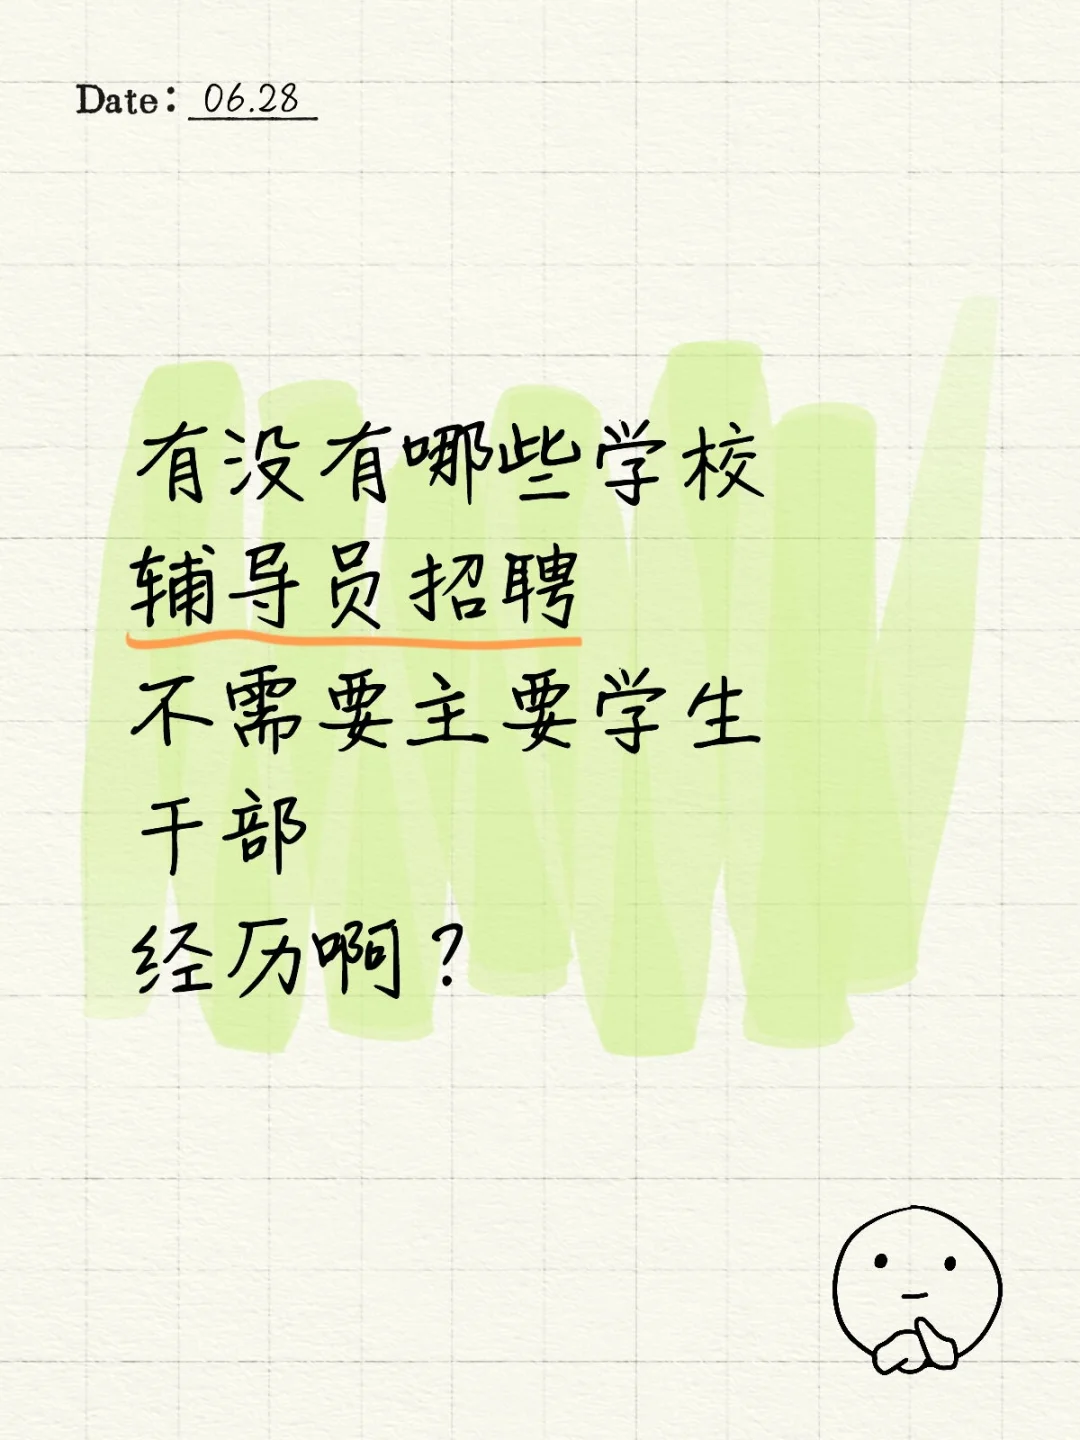 Date: 06.28
有没有哪些学校
辅导员招聘
不需要主要学生
干部
经历啊？